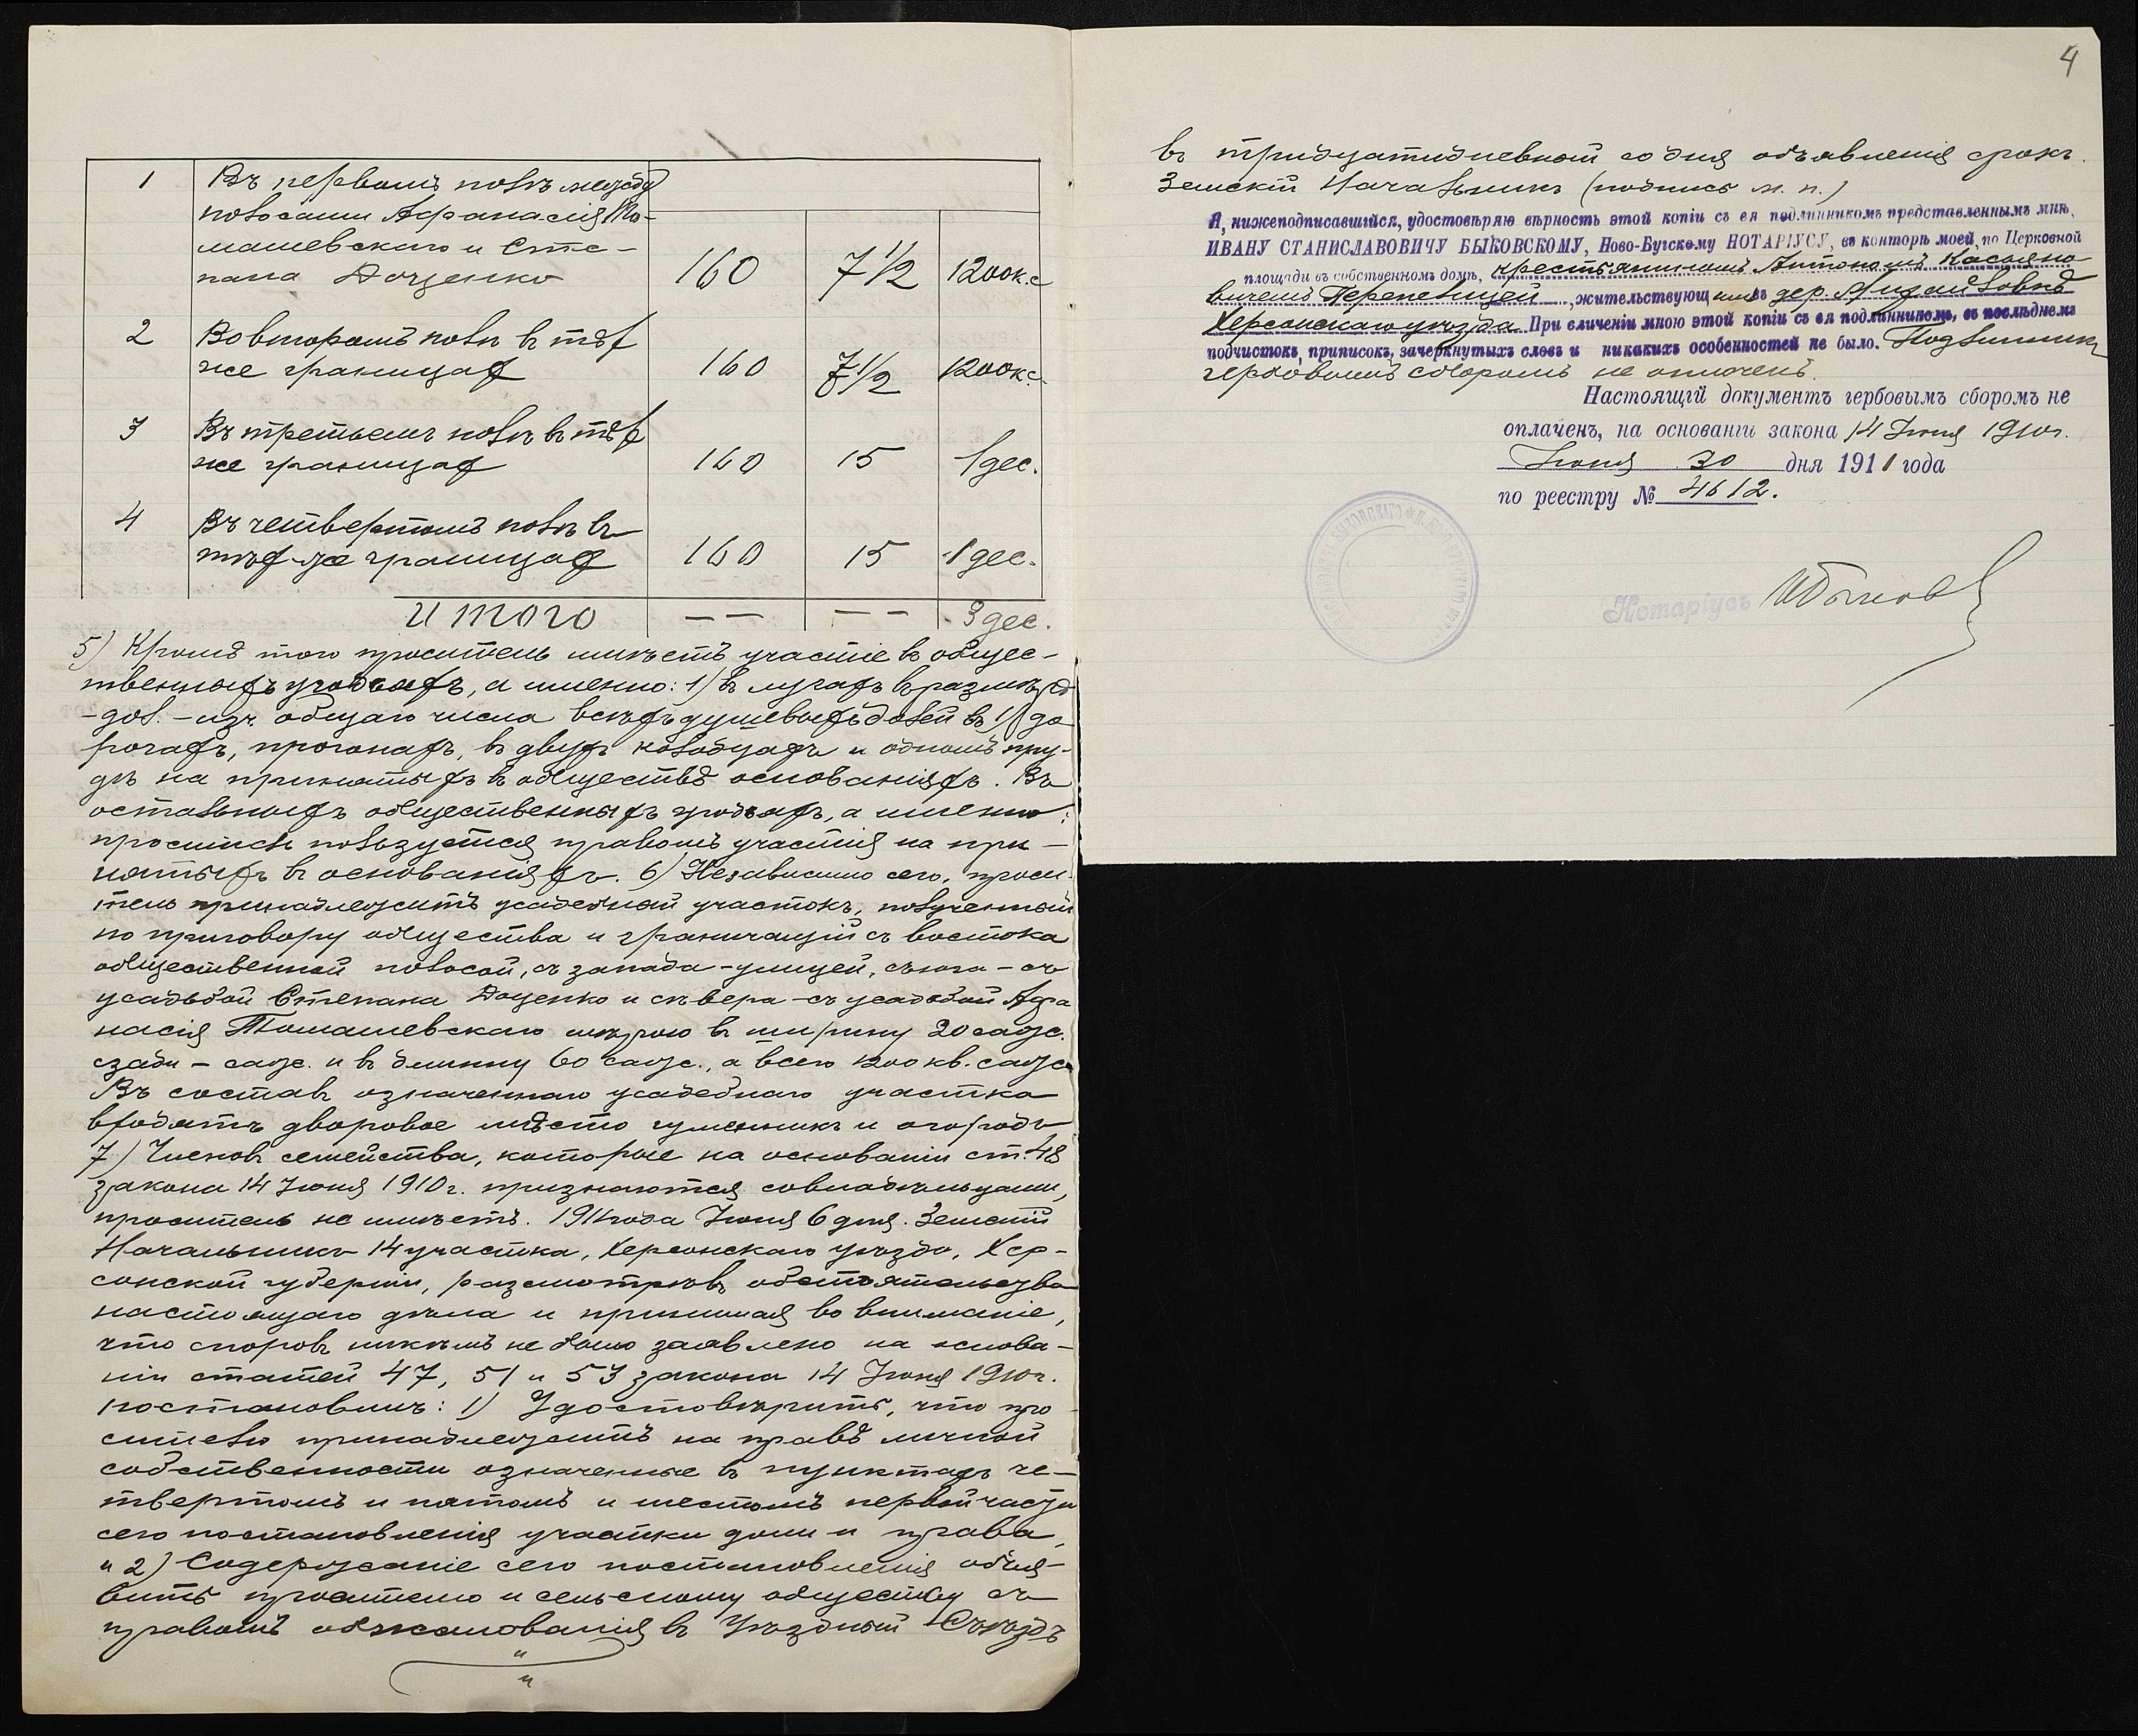 1 Въ первомъ полѣ между
полосами Афанасія То-
машевскаго и Сте-
пана Доценко 160 7 1/2 1200 к.с.
2 Во второмъ полѣ въ тѣх
же границах 160 7 1/2 1200 к.с.
3 Въ третьемъ полѣ въ тѣх
же границах 160 15 1 дес.
4 Въ четвертомъ полѣ въ
тѣх-же границах 160 15 1 дес.
Итого — — — — 3 дес.
5) Кромѣ того проситель имѣетъ участіе въ общес-
твенныхъ угодьяхъ, а именно: 1) въ лугахъ въ размѣрѣ
- дол. - изъ общаго числа всѣхъ душевыхъ долей въ 1) до
рогахъ, прогонахъ, въ двухъ колодцахъ и одномъ пру-
дѣ на принятыхъ въ обществѣ основаніяхъ. Въ
остальныхъ общественныхъ угодьяхъ, а именно:
проситель пользуется правомъ участія на при-
нятыхъ въ основаніяхъ. 6) Независимо сего, проси-
телю принадлежитъ усадебный участокъ, полученный
по приговору общества и граничащій съ востока
общественной полосой, съ запада - улицей, съ юга - съ
усадьбой Степана Доценко и сѣвера - съ усадьбой Афа
насія Томашевскаго мѣрою въ ширину 20 саж.
сзади - саж. и въ длинну 60 саж., а всего 1200 кв. саж.
Въ составъ означеннаго усадебнаго участка
входятъ дворовое мѣсто гуменникъ и огородъ
7) Членовъ семейства, которые на основаніи ст. 48
закона 14 Іюня 1910 г. признаются совладѣльцами,
проситель не имѣетъ. 1911 года Іюня 6 дня. Земскій
Начальникъ 14 участка, Херсонскаго уѣзда, Хер-
сонской губерніи, разсмотрѣвъ обстоятельства
настоящаго дѣла и принимая во вниманіе,
что споровъ никѣмъ не было заявлено на основа-
ніи статей 47, 51 и 53 закона 14 Іюня 1910 г.
постановилъ: 1) Удостовѣрить, что про
сителю принадлежитъ на правѣ личной
собственности означенные въ пунктахъ че-
твертомъ и пятомъ и шестомъ первой части
сего постановленія участки доли и права,
и 2) Содержаніе сего постановленія объя-
вить просителю и сельскому обществу съ
правомъ обжалованія въ Уѣздный Съѣздъ
4
въ тридцатидневный со дня объявленія срокъ.
Земскій Начальникъ (подпись м. п.)
Я, нижеподписавшійся, удостовѣряю вѣрность этой копіи съ ея подлинникомъ представленнымъ мнѣ,
ИВАНУ СТАНИСЛАВОВИЧУ БЫКОВСКОМУ, Ново-Бугскому НОТАРІУСУ, въ конторѣ моей, по Церковной
площади въ собственномъ домѣ, крестьяниномъ Антономъ Касьяно
вичемъ Перепелицей, жительствующимъ въ дер. Михайловкѣ
Херсонскаго уѣзда. При сличеніи мною этой копіи съ ея подлинникомъ, въ послѣднемъ
подчистокъ, приписокъ, зачеркнутыхъ словъ и никакихъ особенностей не было. Подлинникъ
гербовымъ сборомъ не оплаченъ.
Настоящій документъ гербовымъ сборомъ не
оплаченъ, на основаніи закона 14 Іюня 1910 г.
Іюня 30 дня 1911 года
по реестру № 4612.
Нотаріусъ ИБыков